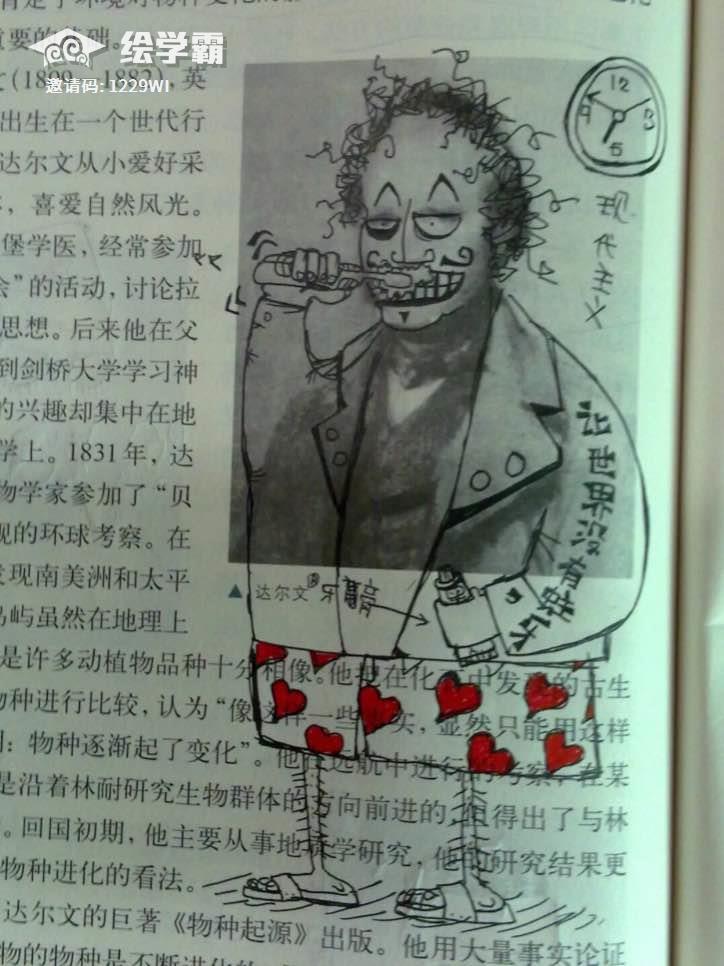 重要的基础。
绘学霸
邀请码: 1229WI
(1809—1882), 英
出生在一个世代行
达尔文从小爱好采
，喜爱自然风光。
堡学医，经常参加
会”的活动，讨论拉
思想。后来他在父
到剑桥大学学习神
的兴趣却集中在地
学上。1831年，达
物学家参加了“贝
规的环球考察。在
发现南美洲和太平
岛屿虽然在地理上
12
9
3
6
现代主义
让世界没有蛀牙
▲ 达尔文
牙膏
是许多动植物品种十分相像。他把在化石中发现的古生
物种进行比较，认为“像这样一些事实，显然只能用这样
：物种逐渐起了变化”。他在远航中进行的考察，在某
是沿着林耐研究生物群体的方向前进的，但得出了与林
。回国初期，他主要从事地质学研究，他的研究结果更
物种进化的看法。
达尔文的巨著《物种起源》出版。他用大量事实论证
物的物种是不断进化的